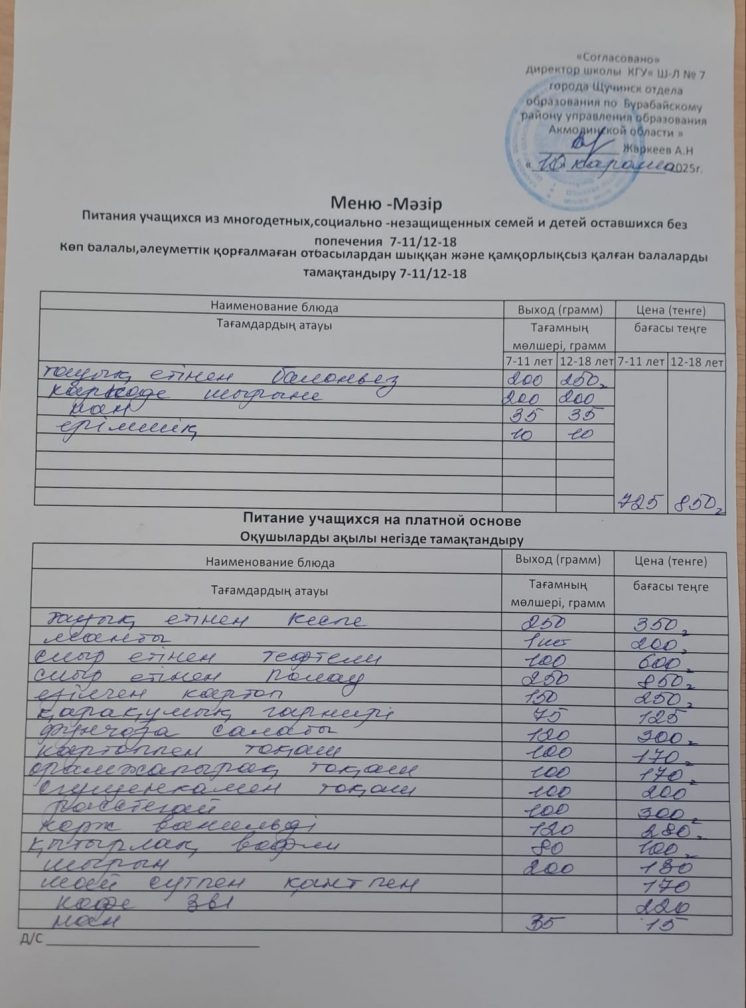 «Согласовано»
директор школы КГУ« Ш-Л № 7
города Щучинск отдела
образования по Бурабайскому
району управления образования
Акмолинской области »
Жаркеев А.Н
« 10 » қараша 2025г.
Меню -Мәзір
Питания учащихся из многодетных,социально -незащищенных семей и детей оставшихся без
попечения 7-11/12-18
Көп балалы,әлеуметтік қорғалмаған отбасылардан шыққан және қамқорлықсыз қалған балаларды
тамақтандыру 7-11/12-18
Наименование блюда Выход (грамм) Цена (тенге)
Тағамдардың атауы Тағамның мөлшері, грамм бағасы теңге
7-11 лет 12-18 лет 7-11 лет 12-18 лет
тауық етінен балоньез 200 250
каркаде шырыны 200 200
нан 35 35
ерімшік 10 10
725 850
Питание учащихся на платной основе
Оқушыларды ақылы негізде тамақтандыру
Наименование блюда Выход (грамм) Цена (тенге)
Тағамдардың атауы Тағамның мөлшері, грамм бағасы теңге
тауық етінен кеспе 250 350
манты 1шт 200
сиыр етінен тефтели 100 600
сиыр етінен палау 250 850
езілген картоп 150 250
қарақұмық гарнирі 75 125
фунчоза салаты 120 300
картоппен тоқаш 100 170
орамжапырақ тоқаш 100 170
сгущенкамен тоқаш 100 200
расстегай 100 300
корж ванильді 120 280
қытырлақ вафли 80 100
шырын 200 130
шай сүтпен қантпен 170
кофе 3в1 220
нан 35 15
Д/С